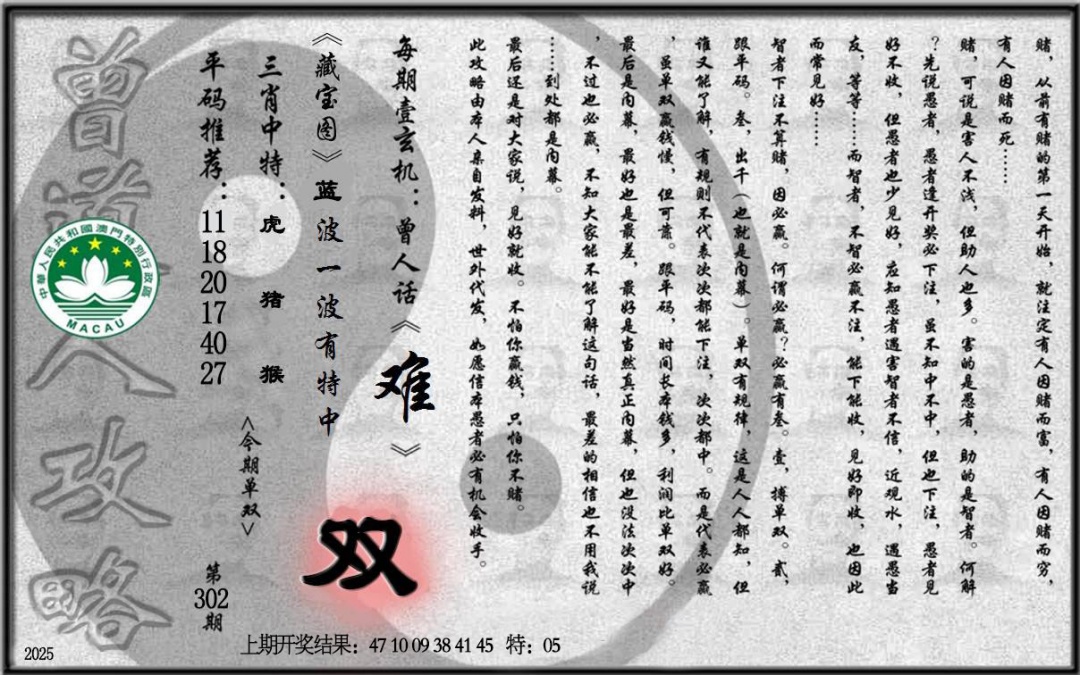 赌，从前有赌的第一天开始，就注定有人因赌而富，有人因赌而穷，
有人因赌而死……
赌，可说是害人不浅，但助人也多。害的是愚者，助的是智者。何解
？先说愚者，愚者逢开奖必下注，虽不知中不中，但也下注，愚者见
好不收，但愚者也少见好，应知愚者遇害智者不信，近观水，遇愚当
友，等等……而智者，不智必赢不注，能下能收，见好即收，也因此
而常见好……
智者下注不算赌，因必赢。何谓必赢？必赢有叁。壹，搏单双。贰，
跟平码。叁，出千（也就是内幕）。单双有规律，这是人人都知，但
谁又能了解，有规则不代表次次都能下注，次次都中。而是代表必赢
，虽单双赢钱慢，但可靠。跟平码，时间长本钱多，利润比单双好。
最后是内幕，最好也是最差，最好是当然真正内幕，但也没法次次中
，不过也必赢，不知大家能不能了解这句话，最差的相信也不用我说
……到处都是内幕。
最后还是对大家说，见好就收。不怕你赢钱，只怕你不赌。
此攻略由本人亲自发料，世外代发，如愿信本愚者必有机会收手。
每期壹玄机：曾人话《难》
《藏宝图》蓝波一波有特中
双
三肖中特：虎 猪 猴
<今期单双>
平码推荐：11 18 20 17 40 27
第302期
曾道人攻略
中華人民共和國澳門特別行政區
MACAU
上期开奖结果：47 10 09 38 41 45 特：05
2025